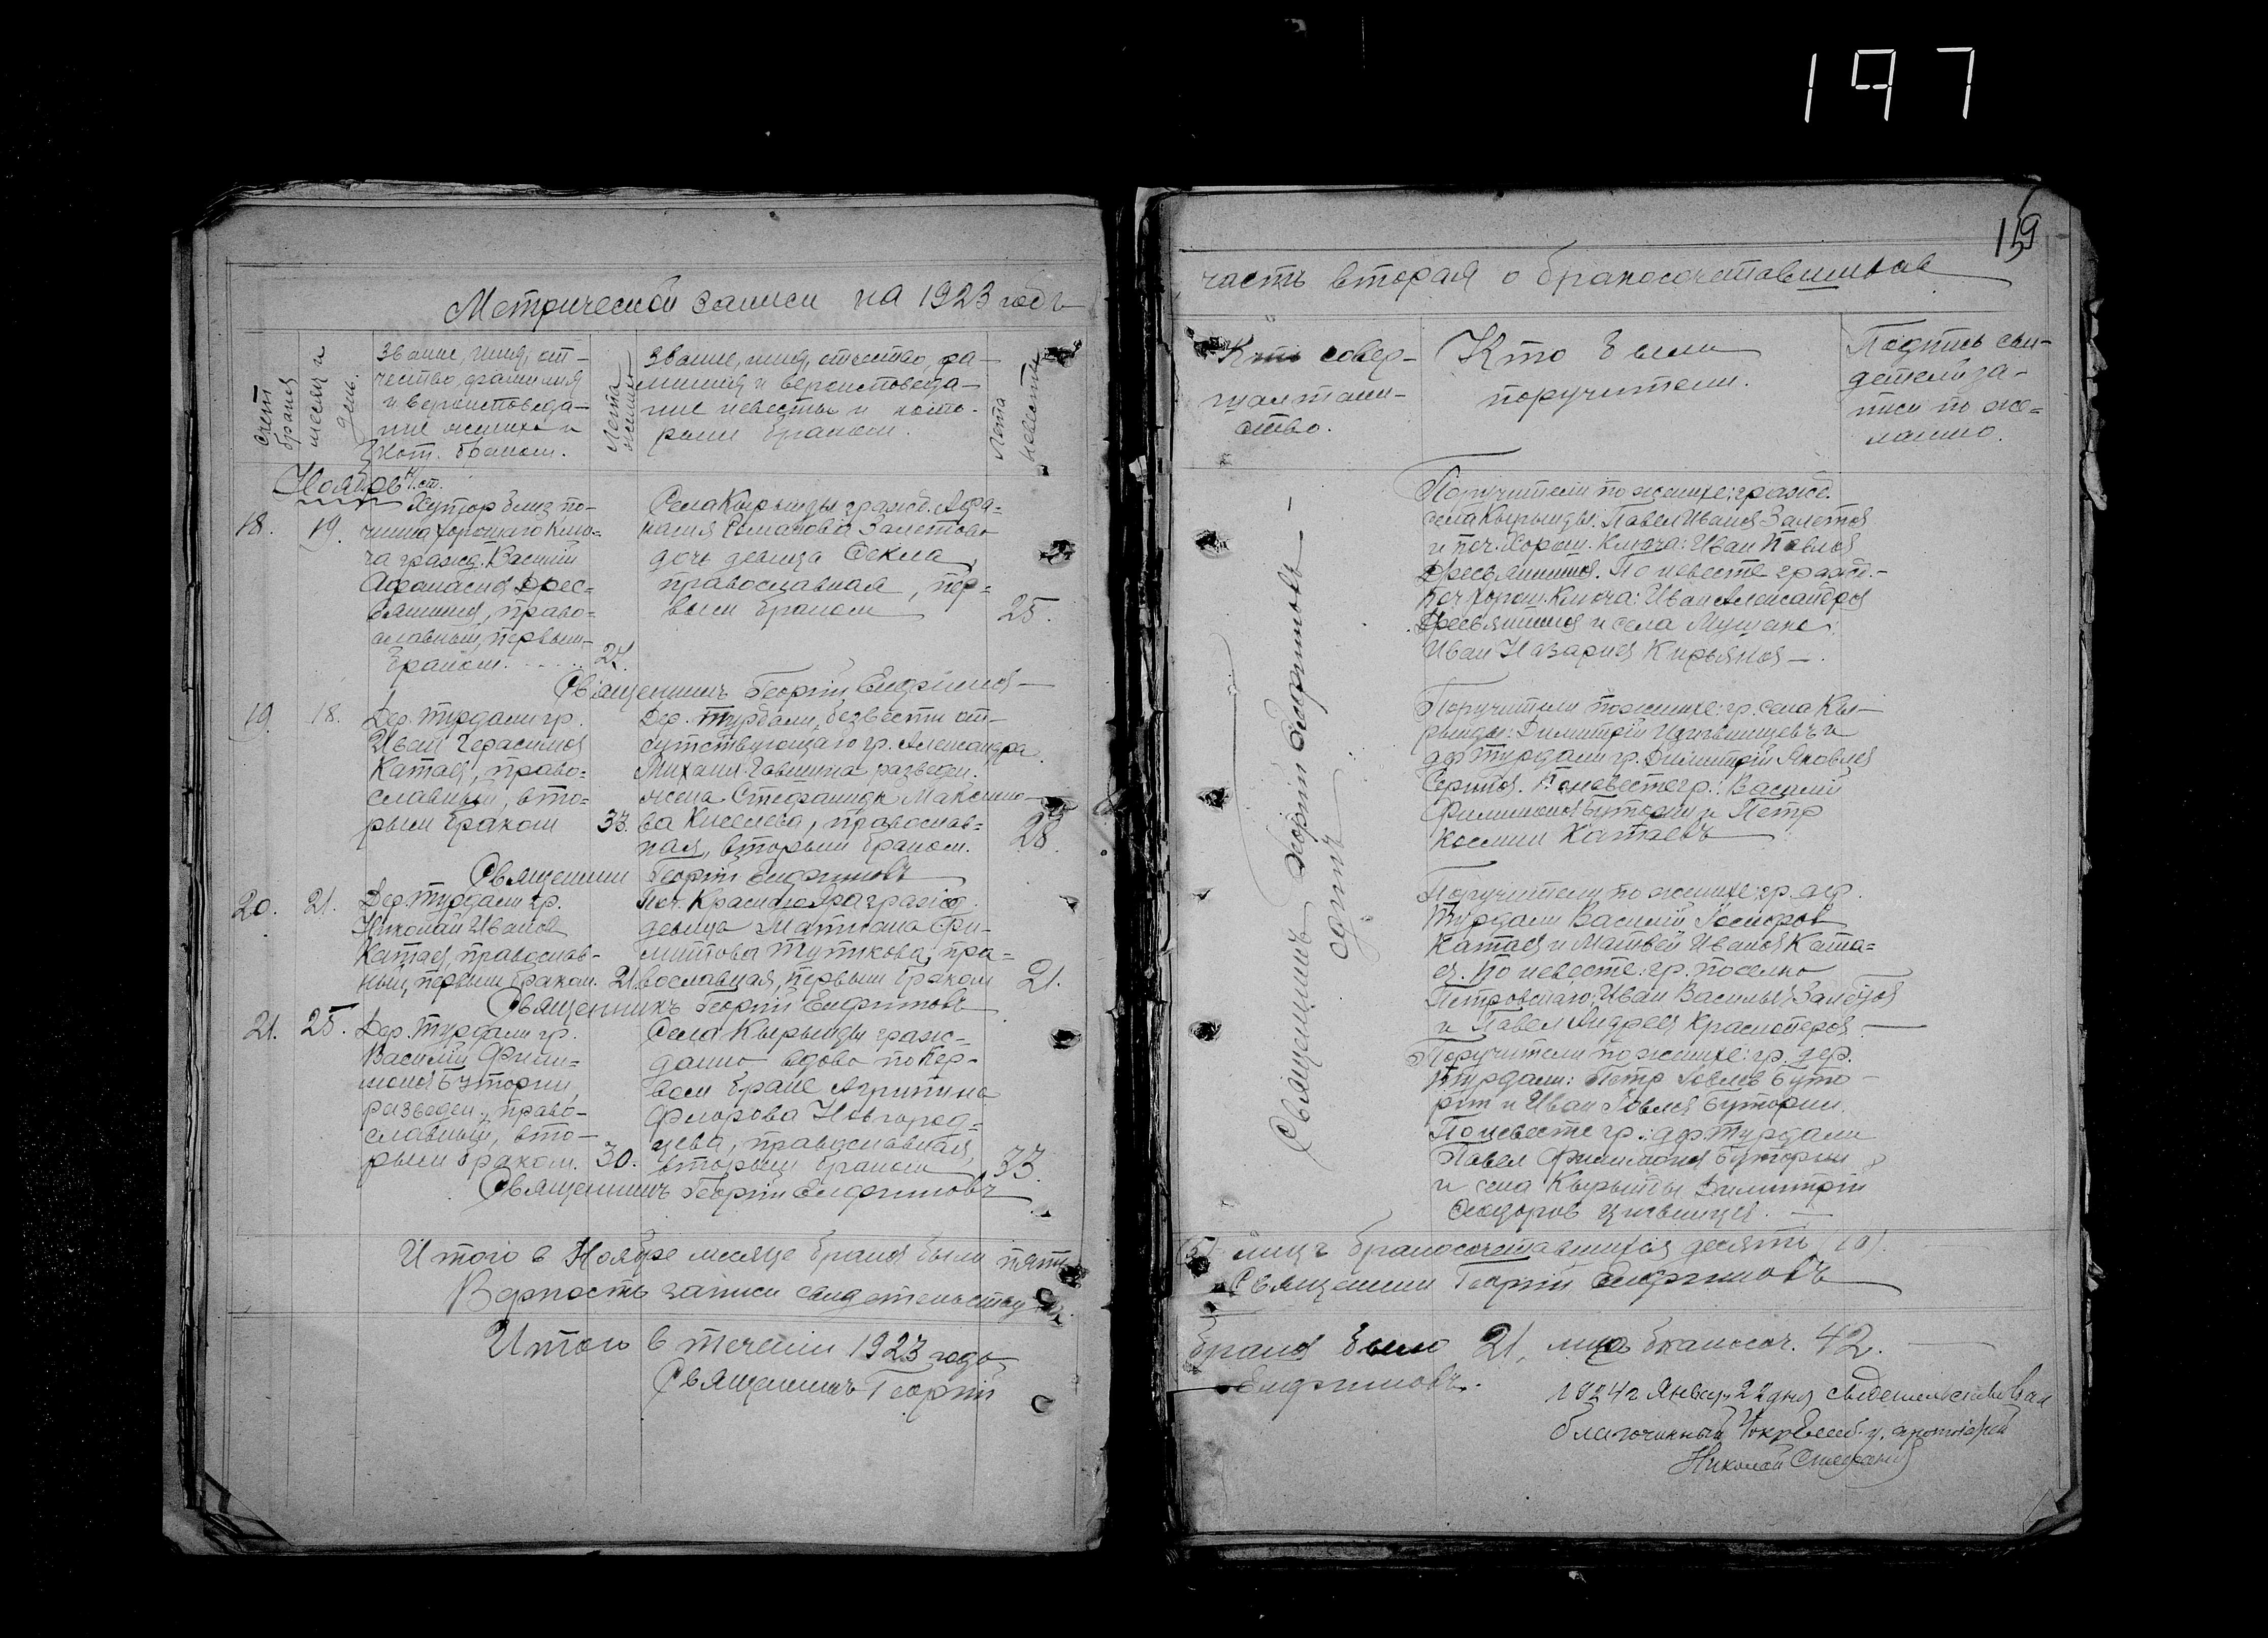 197
159
Метрической записи на 1923 годъ
часть вторая о бракосочетавшихся
Счет
браков
месяц и
день.
Звание, имя, от-
чество, фамилия
и вероисповеда-
ние жениха и
кот. браком.
Лета
жениха
Звание, имя, отчество, фа-
милия и вероисповеда-
ние невесты и кото-
рым браком.
Лета
невесты
Кто совер-
шал таин-
ство.
Кто были
поручители.
Подпись сви-
детелей за-
писи по же=
ланию.
Ноябрь н.ст.
18.
19.
Хутор близ по-
чинка Хорошаго Клю=
ча гражд. Василий
Афанасиев Дрес=
вянников, право=
славный, первым
браком.
24.
Села Кырынды гражд. Афа=
насия Романова Залетова
дочь девица Фекла,
православная, пер=
вым браком
25.
Священникъ Георгий Елифимов
Поручители по женихе: гражд.
села Кырынды: Павел Иванов Залетов
и поч. Хорош. Ключа: Иван Павлов
Дресвянников. По невесте гражд.-
поч. Хорош. Ключа: Иван Александров
Дресвянников и села Мушака:
Иван Назариев Кирьянов
19
18.
Дер. Турдали гр.
Иван Герасимов
Катаев, право=
славный, вто=
рым браком
33.
Дер. Турдали, безвести от-
сутствующаго гр. Александра
Михаил. Гавшина разведен.
жена Стефанида Максимо-
ва Киселева, православ=
ная, вторым браком.
28.
Священник Георгий Елифимовъ
Поручители по женихе: гр. села Кы-
рынды: Димитрий и
дер Турдали гр. Димитрий Яковлев
По невесте гр.: Василий
Филимонов Буторин и Петр
Космин Катаевъ
20.
21.
Дер. Турдали гр.
Николай Иванов
Катаев, православ-
ный, первым браком.
21
Поч. Красный Яр гражд.
девица Матрона
Тутикова, пра=
вославная, первым браком
21.
Священникъ Георгий Елифимовъ
Поручители по женихе: гр. дер.
Турдали Василий
Катаев и Матвей Иванов Ката=
ев. По невесте: гр. поселка
Петровскаго: Иван Васильев
и Павел Андреев Красноперов
21.
25.
Дер. Турдали гр.
Василий Фили=
монов Буторин,
разведен., право-
славный, вто-
рым браком.
30.
Села Кырынды граж-
данка вдова по пер-
вом браке Агрипина
Флорова Новгород=
цева, православная,
вторым браком
33.
Священникъ Георгий Елифимовъ
Поручители по женихе: гр. дер.
Турдали: Петр Иовлев Буто-
рин и Иван Иовлев Буторин.
По невесте гр.: дер Турдали
Павел Филимонов Буторин
и села Кырынды Димитрий
Феодоров
Священникъ Георгий Елифимовъ
Итого в Ноябре месяце браков было пять
(5) лиц бракосочетавшихся десять (10).
Верность записи свидетельствую
Священник Георгий Елифимовъ
Итого в течении 1923 года
браков было 21, лица бракосоч. 42.
Священникъ Георгий
Елифимовъ.
1924 г. Январ. 22 дня свидетельствовал
благочинный протоиерей
Николай Стефанов